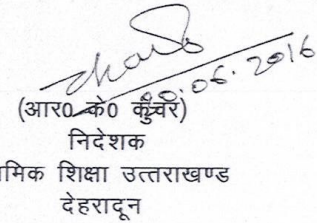 20.06.2016
(आर0 के0 कुंवर)
निदेशक
मिक शिक्षा उत्तराखण्ड
देहरादून